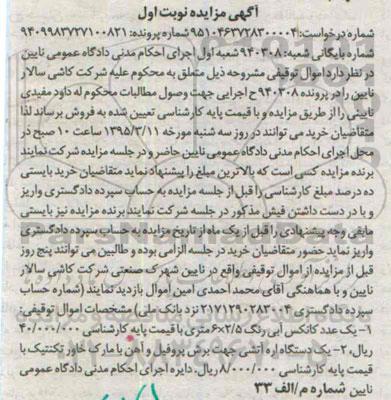 آگهی مزایده نوبت اول
شماره درخواست: ۹۵۱۰۴۶۳۷۲۸۳۰۰۰۰۴ شماره پرونده: ۹۴۰۹۹۸۳۷۲۷۱۰۰۸۲۱
شماره بایگانی شعبه: ۹۴۰۳۰۸ شعبه اول اجرای احکام مدنی دادگاه عمومی نایین
در نظر دارد اموال توقیفی مشروحه ذیل متعلق به محکوم علیه شرکت کاشی سالار
نایین را در پرونده ۹۴۰۳۰۸ ح اجرایی جهت وصول مطالبات محکوم له داود مفیدی
نایینی را از طریق مزایده و با قیمت پایه کارشناسی تعیین شده به فروش برساند لذا
متقاضیان خرید می توانند در روز سه شنبه مورخه ۱۳۹۵/۳/۱۱ ساعت ۱۰ صبح در
محل اجرای احکام مدنی دادگاه عمومی نایین حاضر و در جلسه مزایده شرکت نمایند
برنده مزایده کسی است که بالاترین مبلغ را پیشنهاد نماید متقاضیان خرید بایستی
ده درصد مبلغ کارشناسی را قبل از جلسه مزایده به حساب سپرده دادگستری واریز
و با در دست داشتن فیش مذکور در جلسه شرکت نمایند برنده مزایده نیز بایستی
مابقی وجه پیشنهادی را قبل از یک ماه از تاریخ مزایده به حساب سپرده دادگستری
واریز نماید حضور متقاضیان خرید در جلسه الزامی بوده و طالبین می توانند پنج روز
قبل از مزایده از اموال توقیفی واقع در نایین شهرک صنعتی شرکت کاشی سالار
نایین و با هماهنگی آقای محمد احمدی امین اموال بازدید نمایند (شماره حساب
سپرده دادگستری ۲۱۷۱۲۹۰۲۸۳۰۰۴ نزد بانک ملی) مشخصات اموال توقیفی:
۱- یک عدد کانکس آبی رنگ ۶×۲/۵ متری با قیمت پایه کارشناسی ۴۰/۰۰۰/۰۰۰
ریال ۲- یک دستگاه اره آتشی جهت برش پروفیل و آهن با مارک خاور تکنتیک با
قیمت پایه کارشناسی ۸/۰۰۰/۰۰۰ ریال. دایره اجرای احکام مدنی دادگاه عمومی
نایین شماره م/الف ۳۳